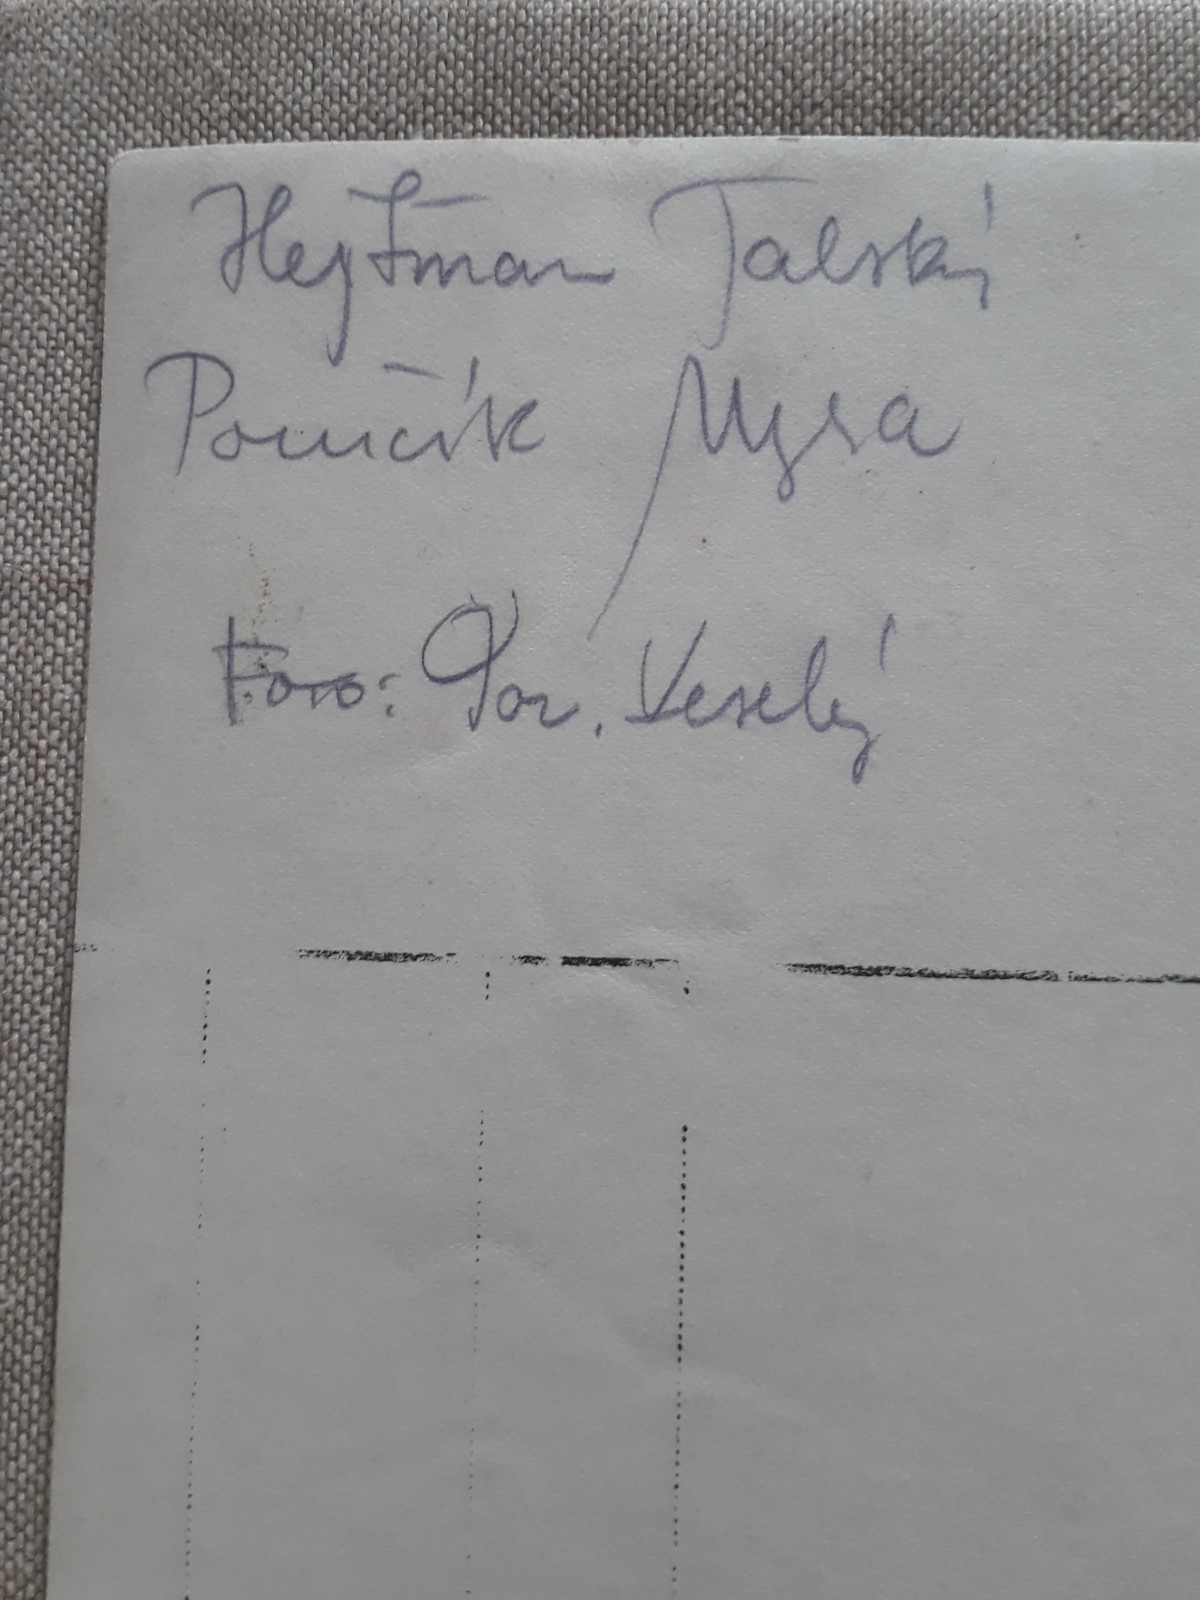 Hejtman Talský
Poručík Mysa
Foto: Por. Veselý